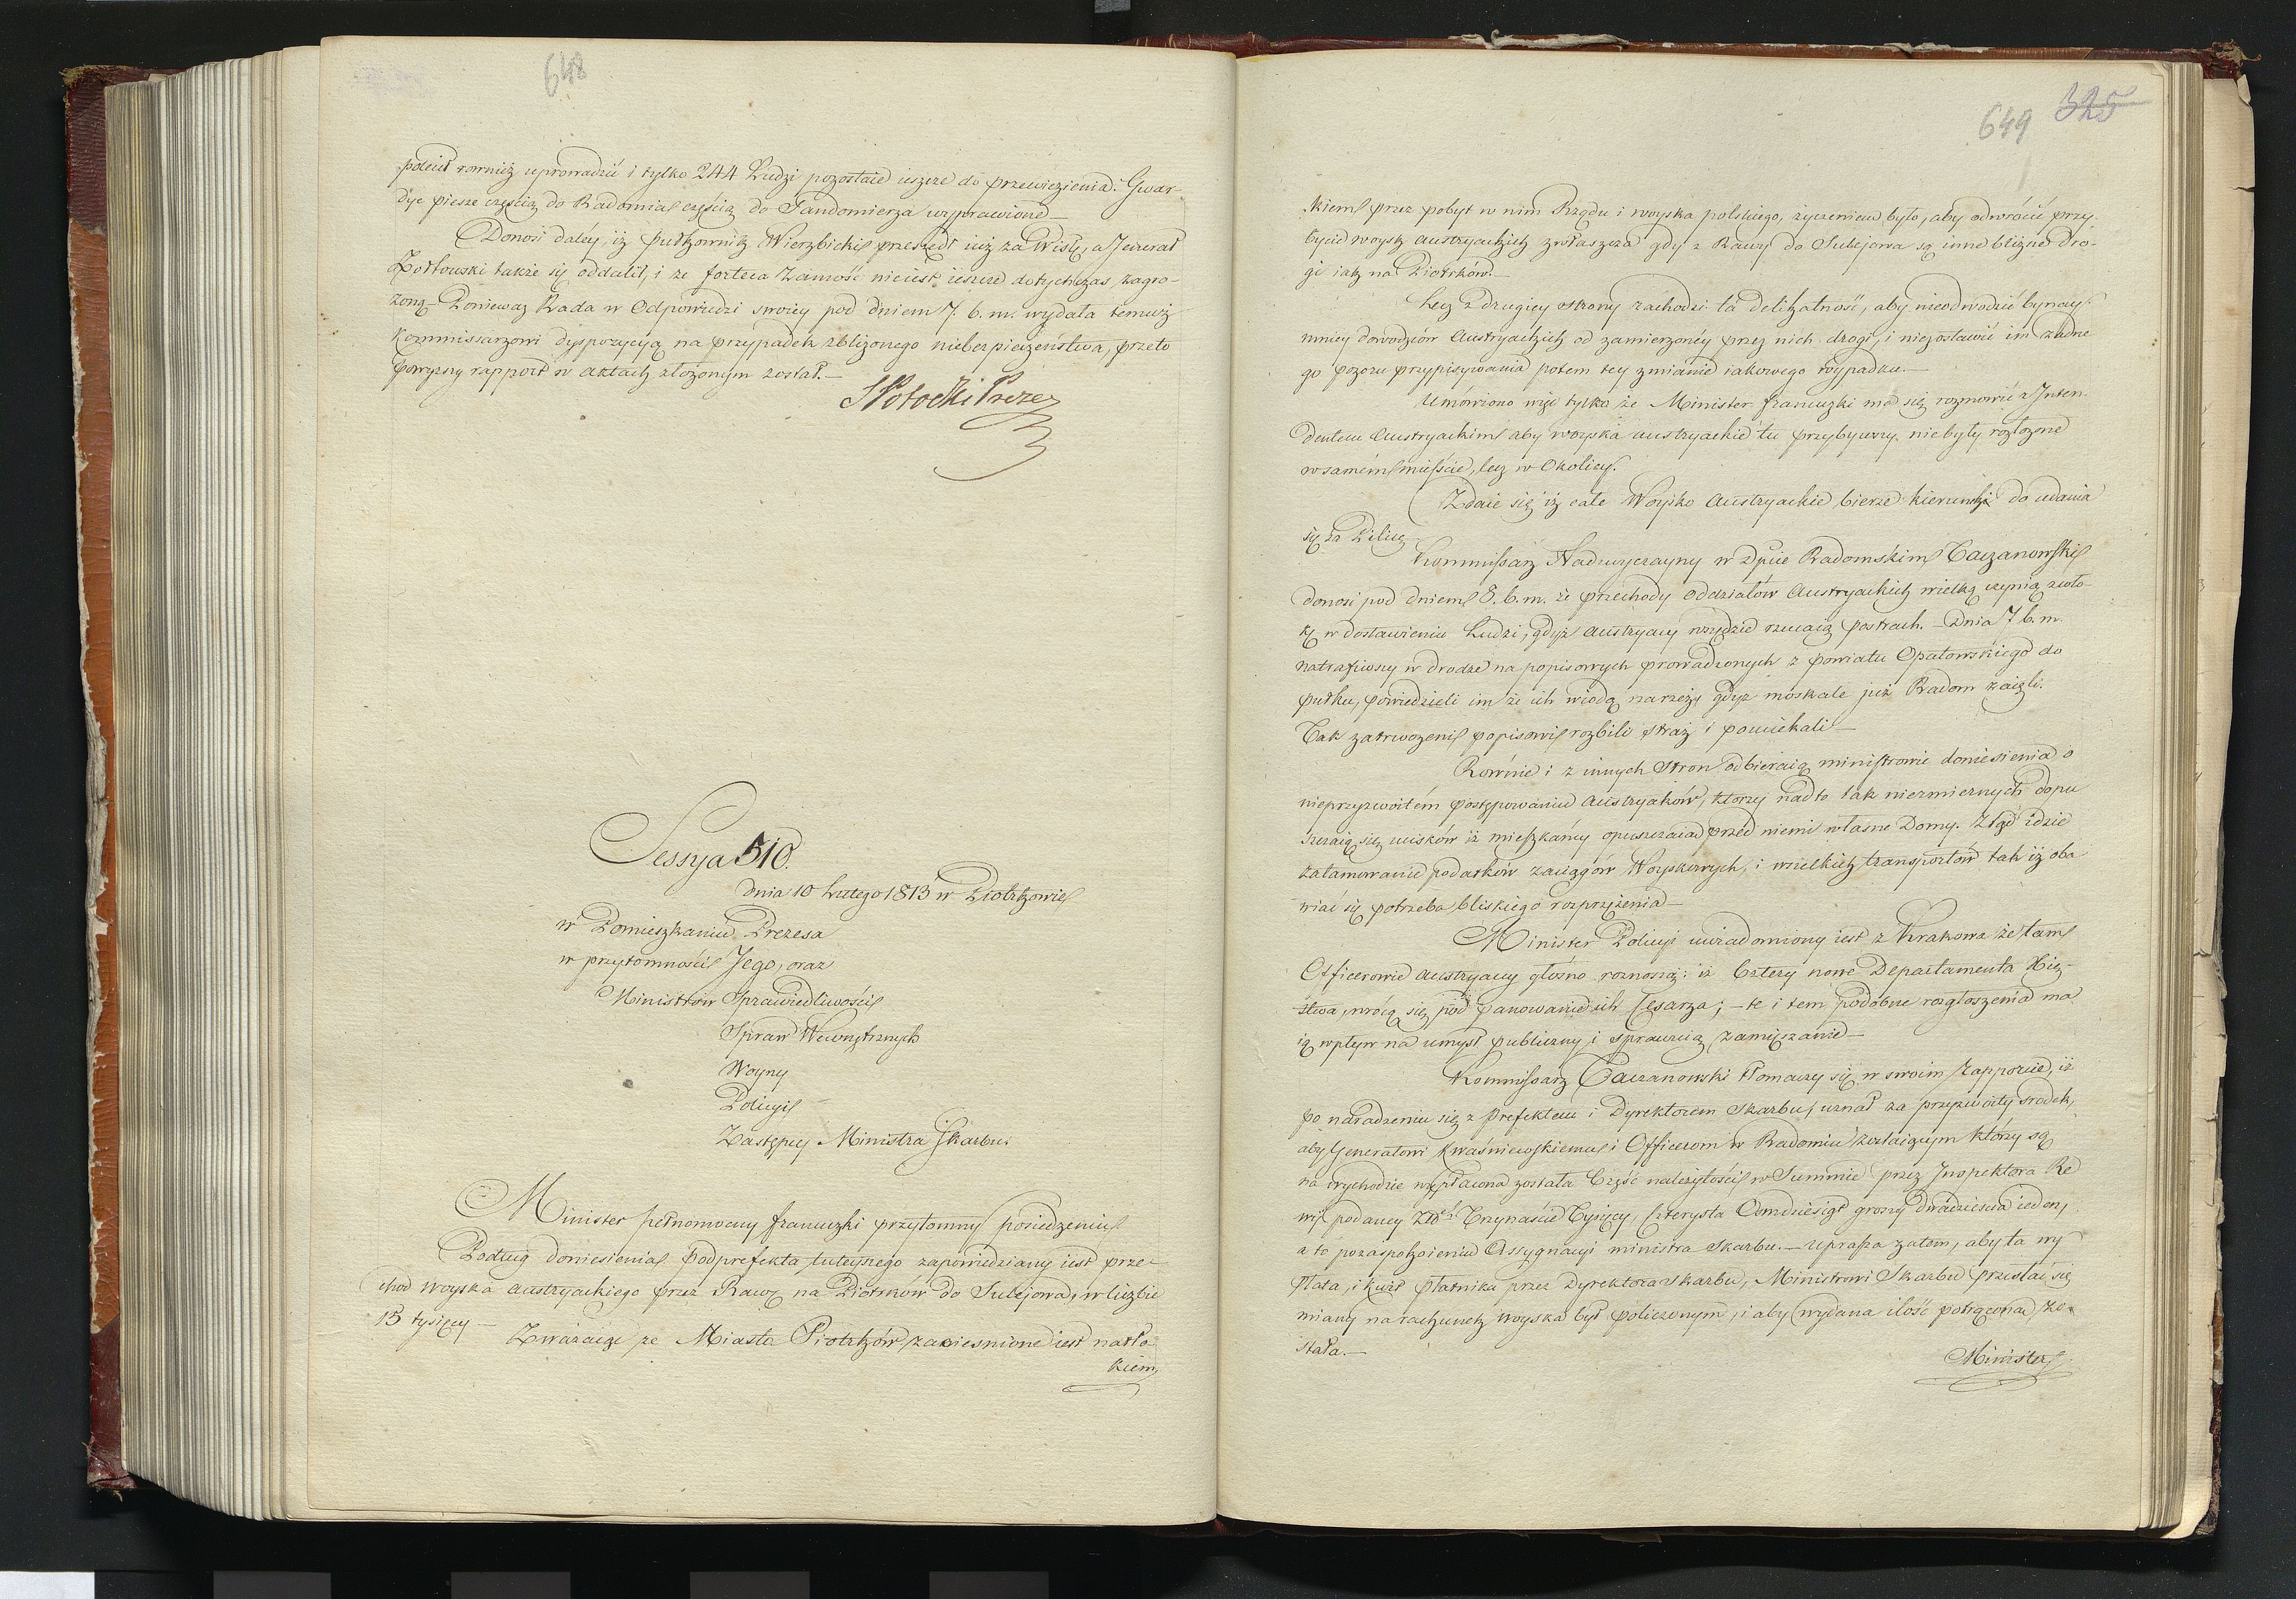 648
polecił rownież uprowadzić i tylko 244 Ludzi pozostaie ieszcze do przewiezienia. Gwar-
dye piesze częścią do Radomia częścią do Sandomierza wyprawione —
Donosi daléy, iż Pułkownik Wierzbicki przeszedł iuż za Wisłę, a Jenerał
Żołtowski także się oddalił, i że forteca Zamość nie iest ieszcze dotychczas zagro-
żoną — Ponieważ Rada w Odpowiedzi swoiey pod dniem 7. b. m. wydała temuż
Kommissarzowi dyspozycyą na przypadek zbliżonego niebezpieczeństwa, przeto
powyższy rapport w aktach złożonym został. —
S Potocki Prezes
Sessya 510.
dnia 10 Lutego 1813 w Piotrkowie
w Pomieszkaniu Prezesa
w przytomności Jego, oraz
Ministrów Sprawiedliwości
Spraw Wewnętrznych
Woyny
Policyi
Zastępcy Ministra Skarbu.
Minister pełnomocny francuzki przytomny posiedzeniu
Podług doniesienia Podprefekta tuteyszego zapowiedziany iest prze-
chod woyska austryackiego przez Rawę na Piotrków do Sulejowa, w liczbie
15 tysięcy —
Zważaiąc że Miasto Piotrków zacieśnione iest natło-
kiem
649 325
kiem przez pobyt w nim Rządu i woyska polskiego, życzeniem było, aby odwrócić przy-
bycie woysk austryackich zwłaszcza gdy z Rawy do Sulejowa są inne bliższe dro-
gi iak na Piotrków. —
Lecz z drugiey strony zachodzi ta delikatność, aby nieodwodzić bynay-
mniey dowodzców Austryackich od zamierzonéy przez nich drogi, i niezostawić im żadne
go pozoru przypisywania potem tey zmianie iakowego wypadku. —
Umówiono więc tylko że Minister francuzki ma się rozmówić z Inten-
dentem Austryackim aby woyska austryackie tu przybywszy niebyły rozłożone
w samém mieście, lecz w Okolicy.
Zdaie się iż całe Woysko Austryackie bierze kierunek do udania
się za Pilicę
Kommissarz Nadzwyczayny w Dpcie Radomskim Taczanowski
donosi pod dniem 8. b. m. że przechody oddziałów Austryackich wielką czynią zwło-
kę w dostawieniu Ludzi, gdyż Austryacy wszędzie rzucaią postrach. — Dnia 7 b. m.
natrafiwszy w drodze na popisowych prowadzonych z powiatu Opatowskiego do
pułku, powiedzieli im że ich wiodą na rzeź, gdyż moskale już Radom zaięli.
Tak zatrwożeni popisowi rozbili straż i pouciekali —
Rownie i z innych stron odbieraią ministrowie doniesienia o
nieprzyzwoitém postępowaniu Austryaków, ktorzy nadto tak niezmiernych dopu
szczaią się ucisków iż mieszkańcy opuszczaią przed niemi własne Domy. Ztąd idzie
zatamowanie podatków zaciągów Woyskowych, i wszelkich transportów tak iż oba
wiać się potrzeba bliskiego rozprzężenia —
Minister Policyi uwiadomiony iest z Krakowa że tam
Officerowie austryaccy głośno roznoszą: iż Cztery nowe Departamenta Xię-
stwa, wrócą się pod panowanie ich Cesarza; — te i tem podobne rozgłoszenia ma
ią wpływ na umysł publiczny i sprawuią zamięszanie —
Kommissarz Taczanowski tłomaczy się w swoim Rapporcie, iż
po naradzeniu się z Prefektem i Dyrektorem Skarbu, uznał za przyzwoity srodek,
aby Generałowi Kwaśniewskiemu i Officerom w Radomiu zostaiącym ktorzy są
na wychodzie wypłacona została Część należytości w Summie przez Inspektora Re
wii podaney Złt. Trzynaście Tysięcy, Czterysta Ośmdziesiąt groszy dwadzieścia ieden,
a to po zaspokoieniu Assygnacyi ministra Skarbu. — uprasza zatem, aby ta wy
płata, i kwit płatnika przez Dyrektora skarbu, Ministrowi Skarbu przesłać się
miany na rachunek woyska był policzonym, i aby wydana ilość potrącona zo-
stała. —
Minister